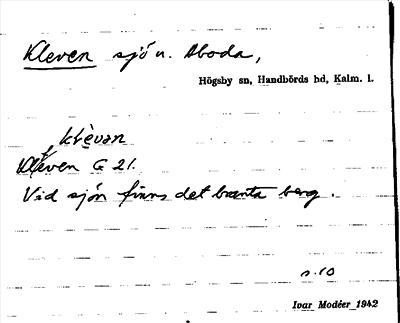 Kleven sjö n. Aboda,
Högsby sn, Handbörds hd, Kalm. l.
klèvən
Kleven G 21.
Vid sjön finns det branta berg.
s. 10
Ivar Modéer 1942